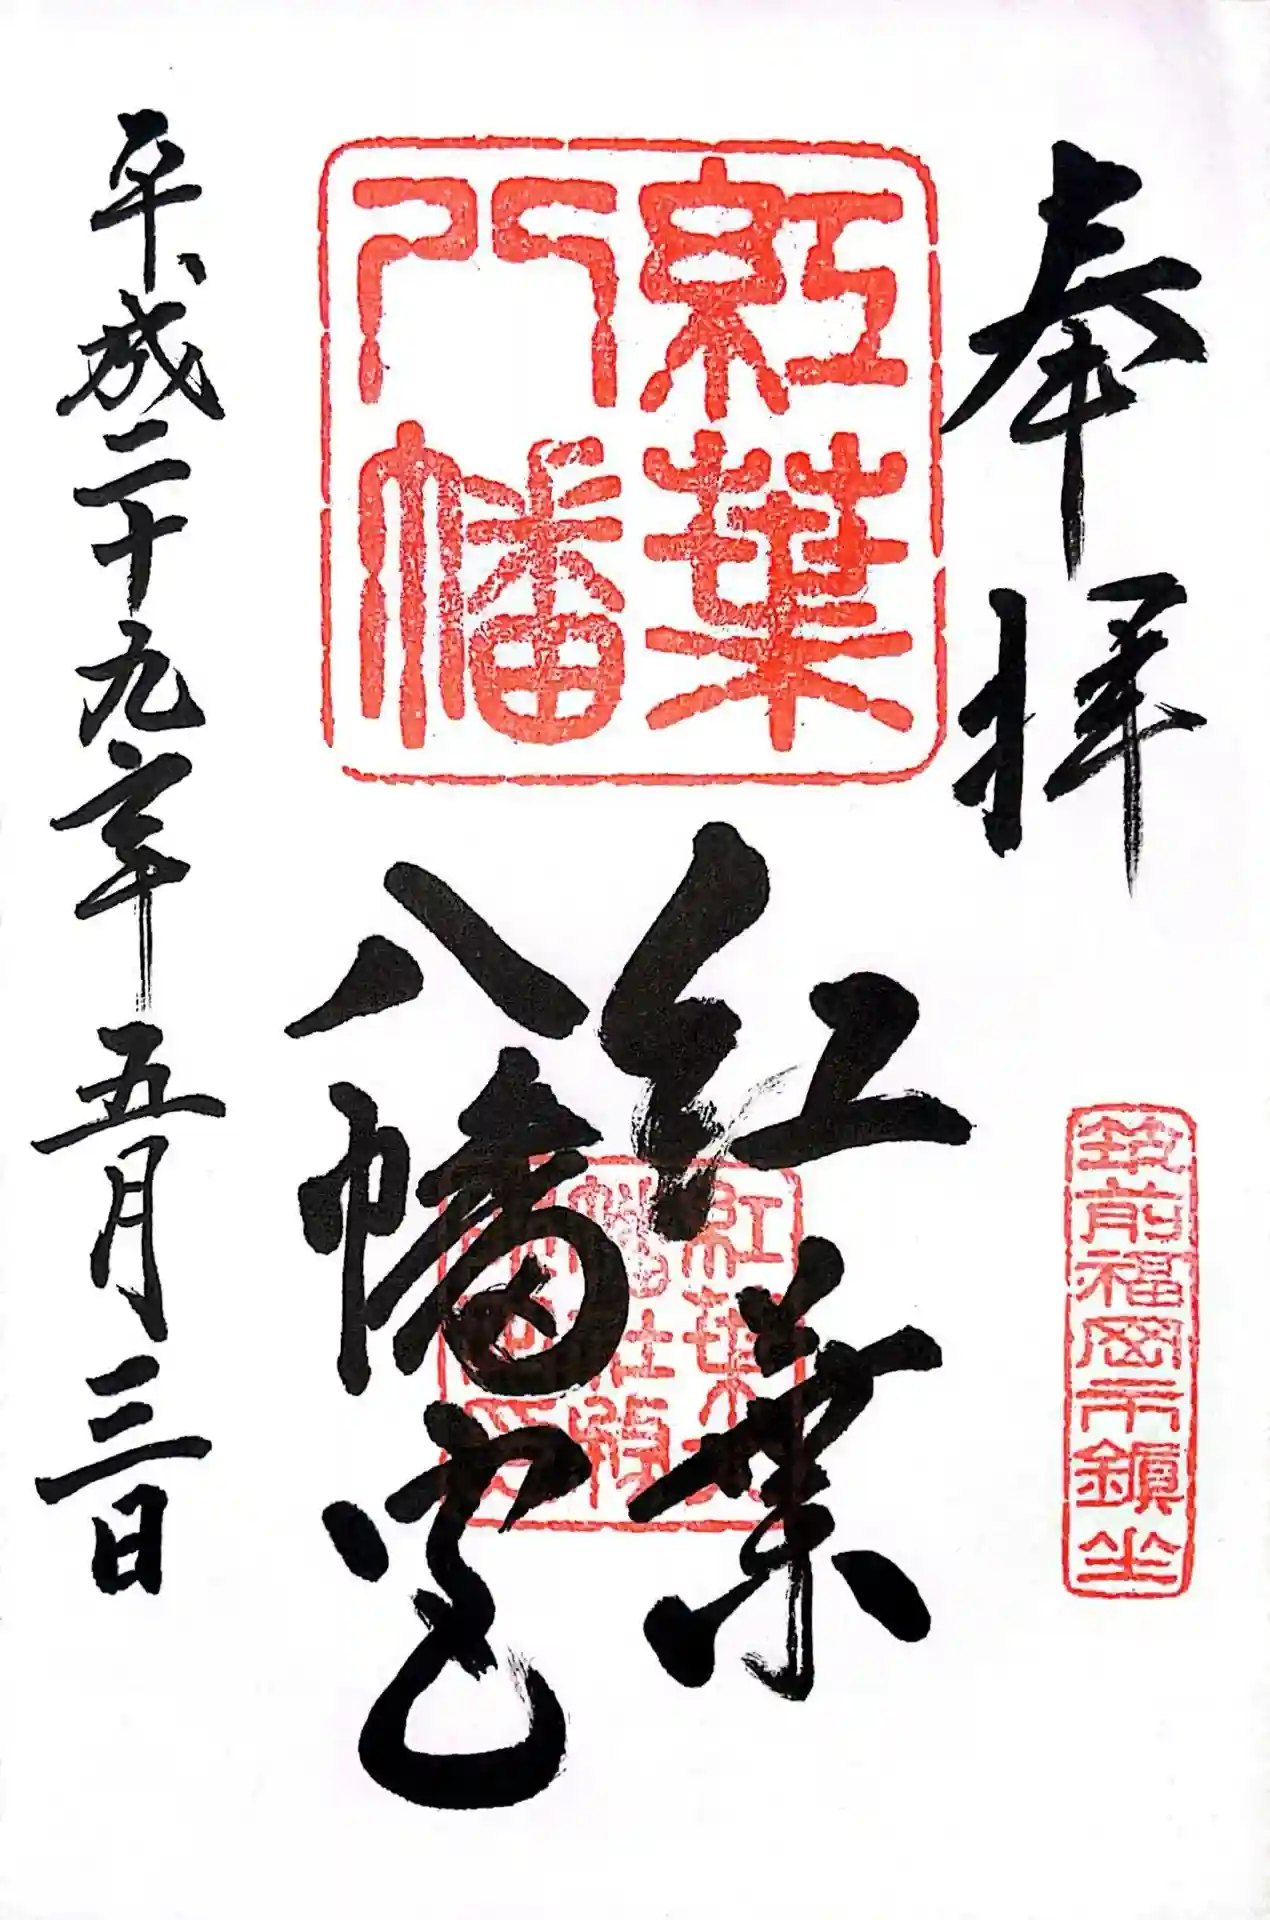 奉拝
筑前福岡市鎮坐
紅葉
八幡
紅葉
八幡宮
平成二十九年五月三日